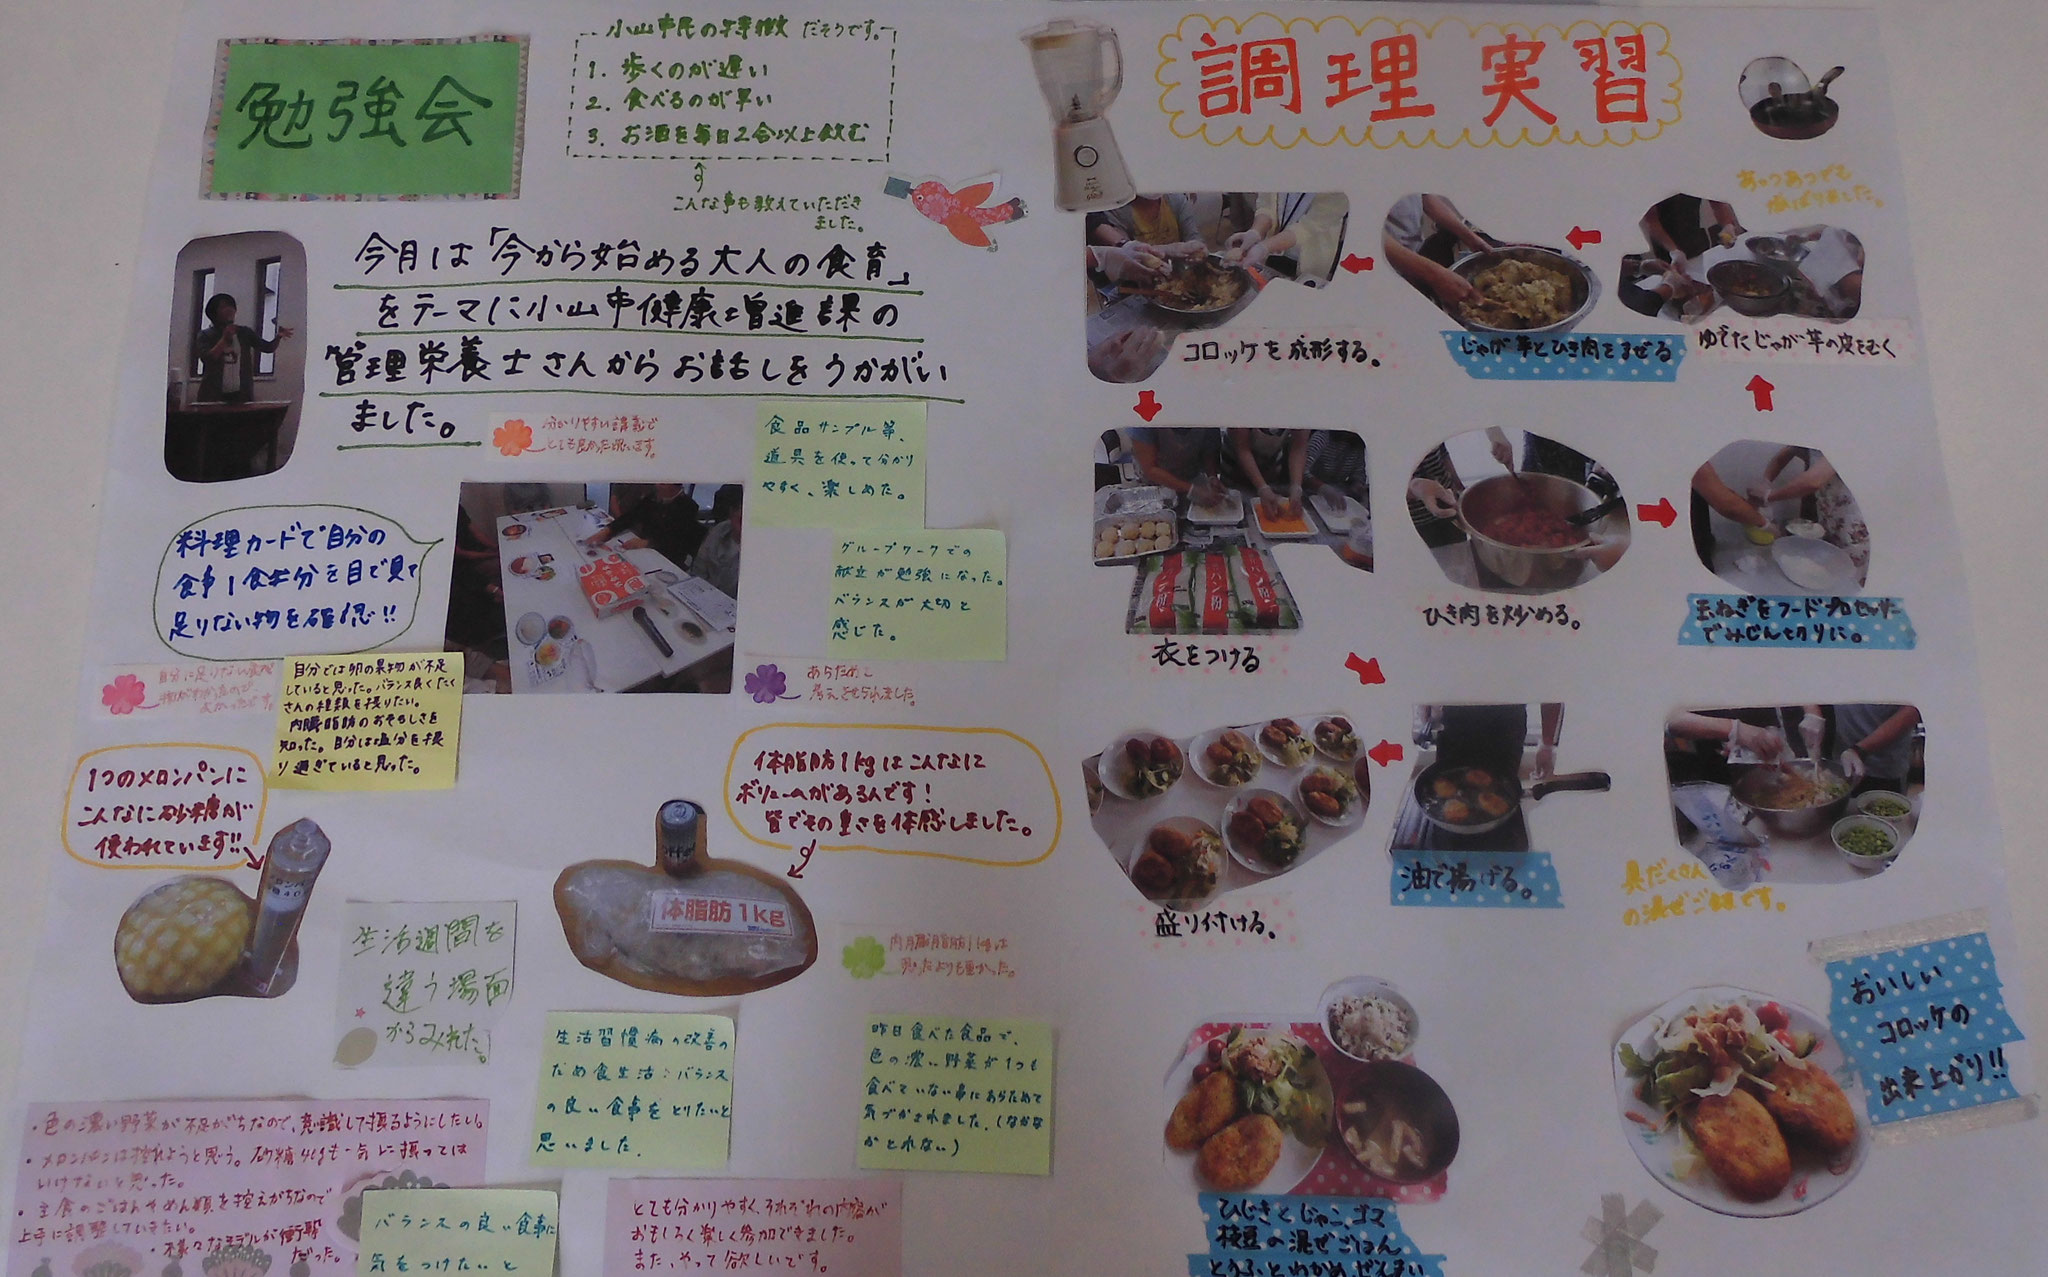 勉強会
小山市民の特徴 だそうです。
1. 歩くのが遅い
2. 食べるのが早い
3. お酒を毎日2合以上飲む
こんな事も教えていただき
ました。
今月は「今から始める大人の食育」
をテーマに小山市健康増進課の
管理栄養士さんからお話しをうかがい
ました。
分かりやすい講義で
とても良かった思います。
食品サンプル等、
道具を使って分かり
やすく、楽しめた。
料理カードで自分の
食事1食分を目で見て
足りない物を確認!!
グループワークでの
献立が勉強になった。
バランスが大切と
感じた。
自分に足りない
よかったです。
自分では卵の果物が不足
していると思った。バランス良くたく
さんの種類を採りたい。
内臓脂肪のおそろしさを
知った。自分は塩分を採
り過ぎていると思った。
あらためて
考えさせられました。
1つのメロンパンに
こんなに砂糖が
使われています!!
体脂肪1kgはこんなに
ボリュームがあるんです!
皆でその重さを体感しました。
体脂肪1kg
生活週間を
違う場面
からみれた。
内臓脂肪1kgは
思ったよりも重かった。
生活習慣病の改善の
ため食生活:バランス
の良い食事をとりたいと
思いました.
昨日食べた食品で、
色の濃い野菜が1つも
食べていない事にあらためて
気づかされました.(なかな
かとれない)
・色の濃い野菜が不足がちなので、意識して摂るようにしたい。
・メロンパンは控れようと思う。砂糖41gも一気に摂っては
いけないと思った。
・主食のごはんやめん類を控えがちなので
上手に調整していきたい。
・様々なモデルが衝撃
だった。
バランスの良い食事に
気をつけたいと
とても分かりやすく、それぞれの内容が
おもしろく楽しく参加できました。
また、やって欲しいです。
調理実習
あつあつでも
頑ばりました。
コロッケを成形する。
じゃが芋とひき肉をまぜる
ゆでたじゃが芋の皮をむく
パン粉
パン粉
パン粉
衣をつける
ひき肉を炒める。
玉ねぎをフードプロセッサー
でみじん切りに。
盛り付ける。
油で揚げる。
具だくさん
の混ぜご飯です。
おいしい
コロッケの
出来上がり!!
ひじきとじゃこ、ゴマ
枝豆の混ぜごはん
とうふとわかめ、ぜんまい